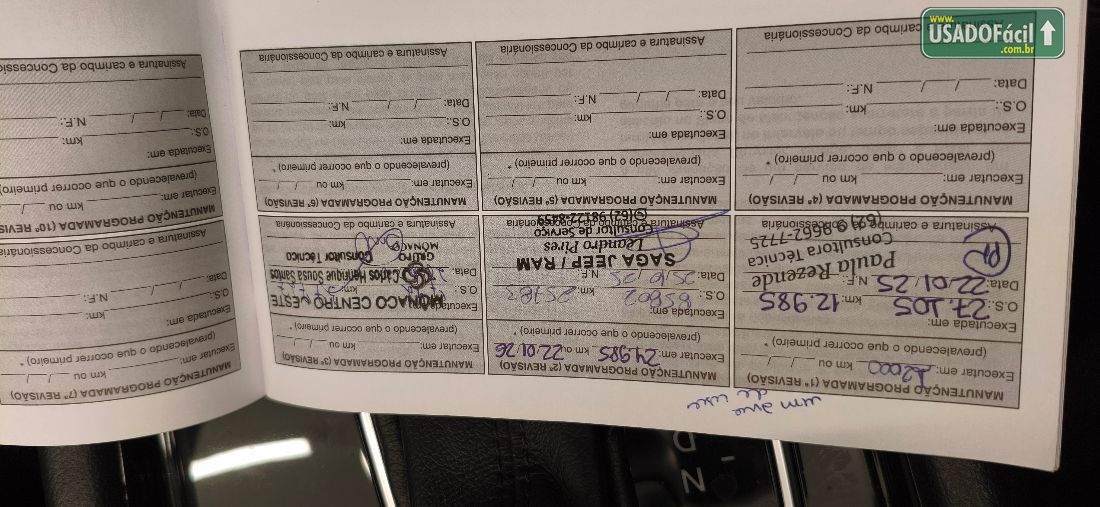 www.
USADOFácil
.com.br
um ano
de uso
MANUTENÇÃO PROGRAMADA (1ª REVISÃO)
Executar em: 12000 km ou / /
(prevalecendo o que ocorrer primeiro) *
Executada em:
O.S.: 27.105 km: 12.985
Data: 22/01/25 N.F.:
Paula Rezende
Consultora Técnica
(62) 9 9662-7725
Assinatura e carimbo da Concessionária
MANUTENÇÃO PROGRAMADA (2ª REVISÃO)
Executar em: 24.985 km ou 22/01/26
(prevalecendo o que ocorrer primeiro) *
Executada em:
O.S.: 65802 km: 25783
Data: 25/10/25 N.F.:
SAGA JEEP / RAM
Leandro Pires
Consultor de Serviço
(62) 98122-8459
Assinatura e carimbo da Concessionária
MANUTENÇÃO PROGRAMADA (3ª REVISÃO)
Executar em: km ou / /
(prevalecendo o que ocorrer primeiro) *
Executada em:
MONACO CENTRO OESTE
O.S.: km:
Carlos Henrique Sousa Santos
Data:
Consultor Técnico
GRUPO
MÔNACO
Assinatura e carimbo da Concessionária
MANUTENÇÃO PROGRAMADA (4ª REVISÃO)
Executar em: km ou / /
(prevalecendo o que ocorrer primeiro) *
Executada em:
O.S.: km:
Data: / / N.F.:
Assinatura e carimbo da Concessionária
MANUTENÇÃO PROGRAMADA (5ª REVISÃO)
Executar em: km ou / /
(prevalecendo o que ocorrer primeiro) *
Executada em:
O.S.: km:
Data: / / N.F.:
Assinatura e carimbo da Concessionária
MANUTENÇÃO PROGRAMADA (6ª REVISÃO)
Executar em: km ou / /
(prevalecendo o que ocorrer primeiro) *
Executada em:
O.S.: km:
Data: / / N.F.:
Assinatura e carimbo da Concessionária
MANUTENÇÃO PROGRAMADA (7ª REVISÃO)
Executar em: km ou / /
(prevalecendo o que ocorrer primeiro) *
Executada em:
O.S.: km:
Data: / / N.F.:
Assinatura e carimbo da Concessionária
MANUTENÇÃO PROGRAMADA (10ª REVISÃO)
Executar em: km ou / /
(prevalecendo o que ocorrer primeiro) *
Executada em:
O.S.: km:
Data: / / N.F.:
Assinatura e carimbo da Concessionária
N
D